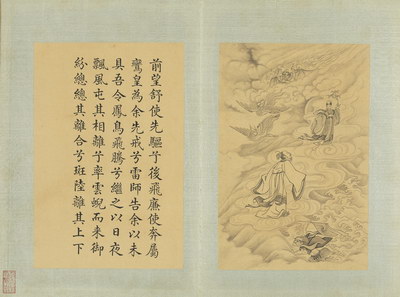 前望舒使先驅兮後飛廉使奔屬
鸞皇為余先戒兮雷師告余以未
具吾令鳳鳥飛騰兮繼之以日夜
飄風屯其相離兮率雲蜺而來御
紛總總其離合兮斑陸離其上下